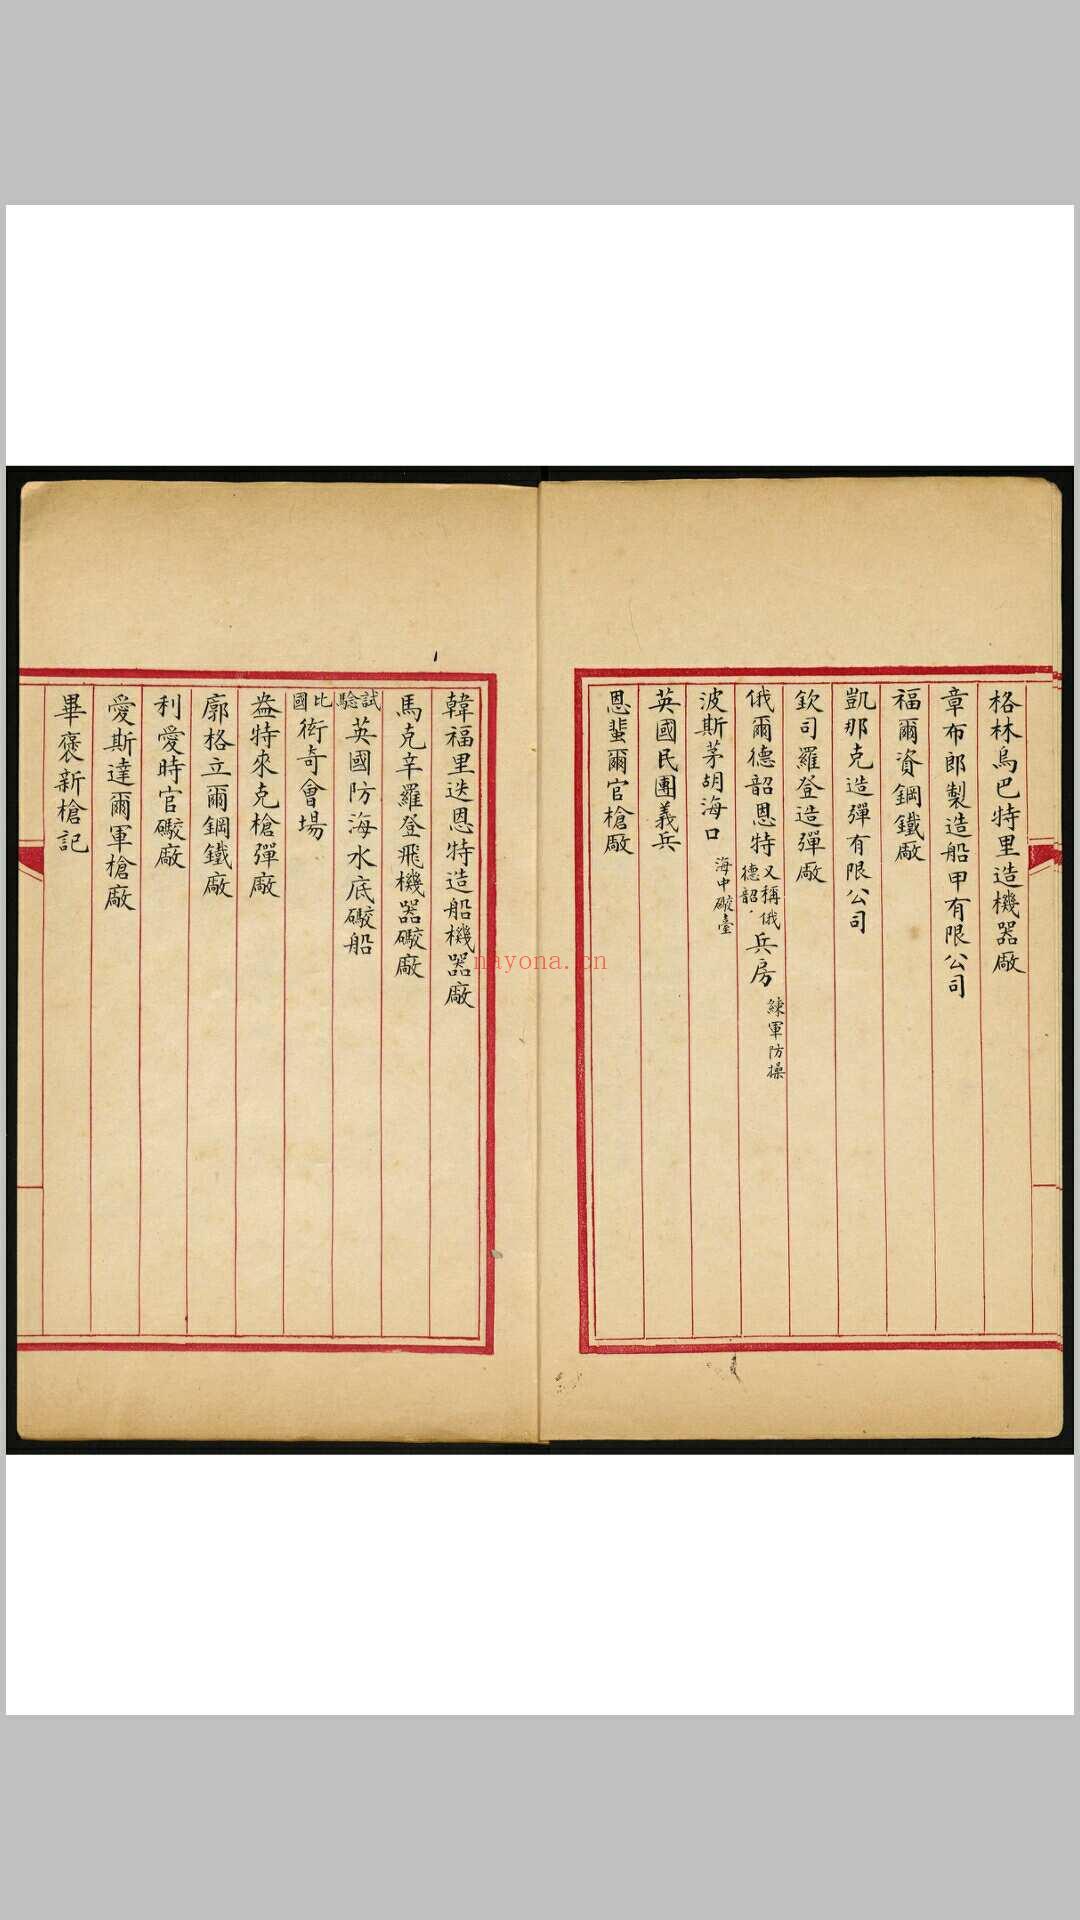 格林烏巴特里造機器廠
章布郎製造船甲有限公司
福爾資鋼鐵廠
凱那克造彈有限公司
欽司羅登造彈廠
俄爾德韶恩特又稱俄德韶兵房練軍防操
波斯茅胡海口海中礮臺
英國民團義兵
恩蜚爾官槍廠
韓福里迭恩特造船機器廠
馬克辛羅登飛機器礮廠
試驗英國防海水底礮船
比國衒奇會場
益特來克槍彈廠
廓格立爾鋼鐵廠
利愛時官礮廠
愛斯達爾軍槍廠
畢褒新槍記
nayona.cn